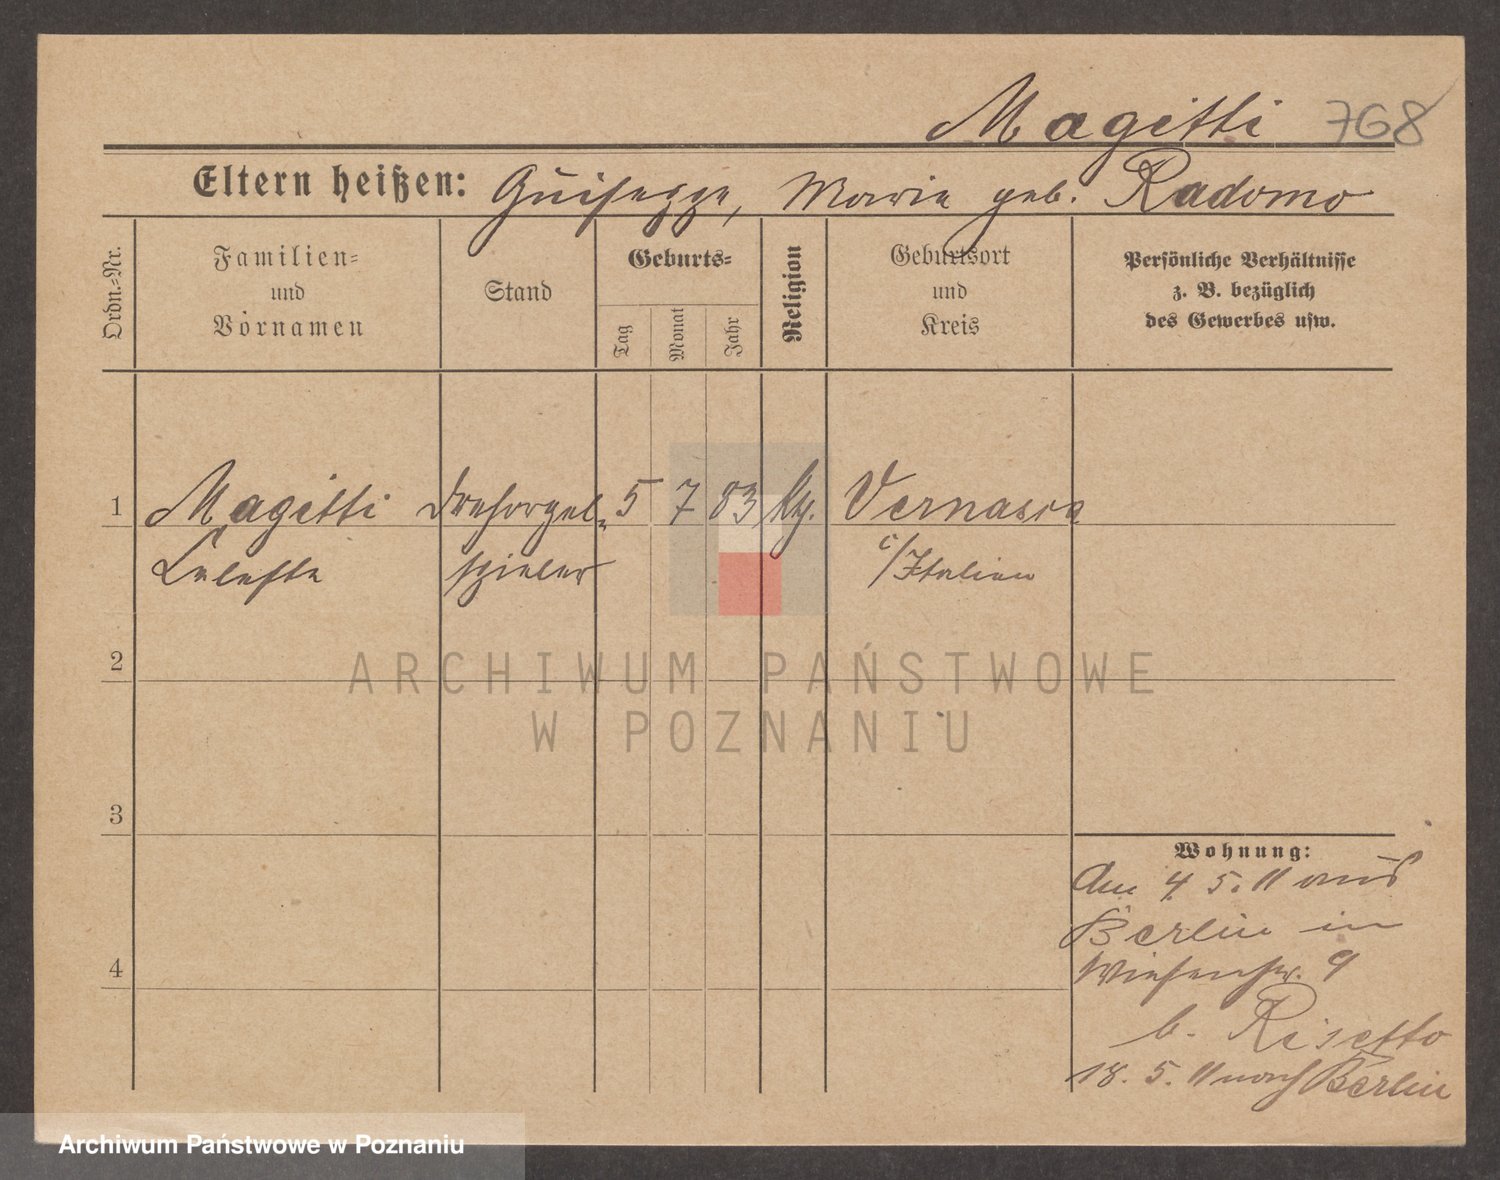 Magitti 768
Eltern heißen: Guiseppe, Marie geb. Radomo
Ordn.-Nr.
Familien-
und
Vornamen
Stand
Geburts-
Tag
Monat
Jahr
Religion
Geburtsort
und
Kreis
Persönliche Verhältnisse
z. B. bezüglich
des Gewerbes usw.
1 Magitti Drehorgel- 5 7 83 kth. Vernasca
Celeste spieler i/Italien
2
3
4
Wohnung:
Am 4 5. 11 aus
Berlin in
Wiesenstr. 9
b. Risetto
18. 5. 11 nach Berlin
ARCHIWUM PAŃSTWOWE
W POZNANIU
Archiwum Państwowe w Poznaniu